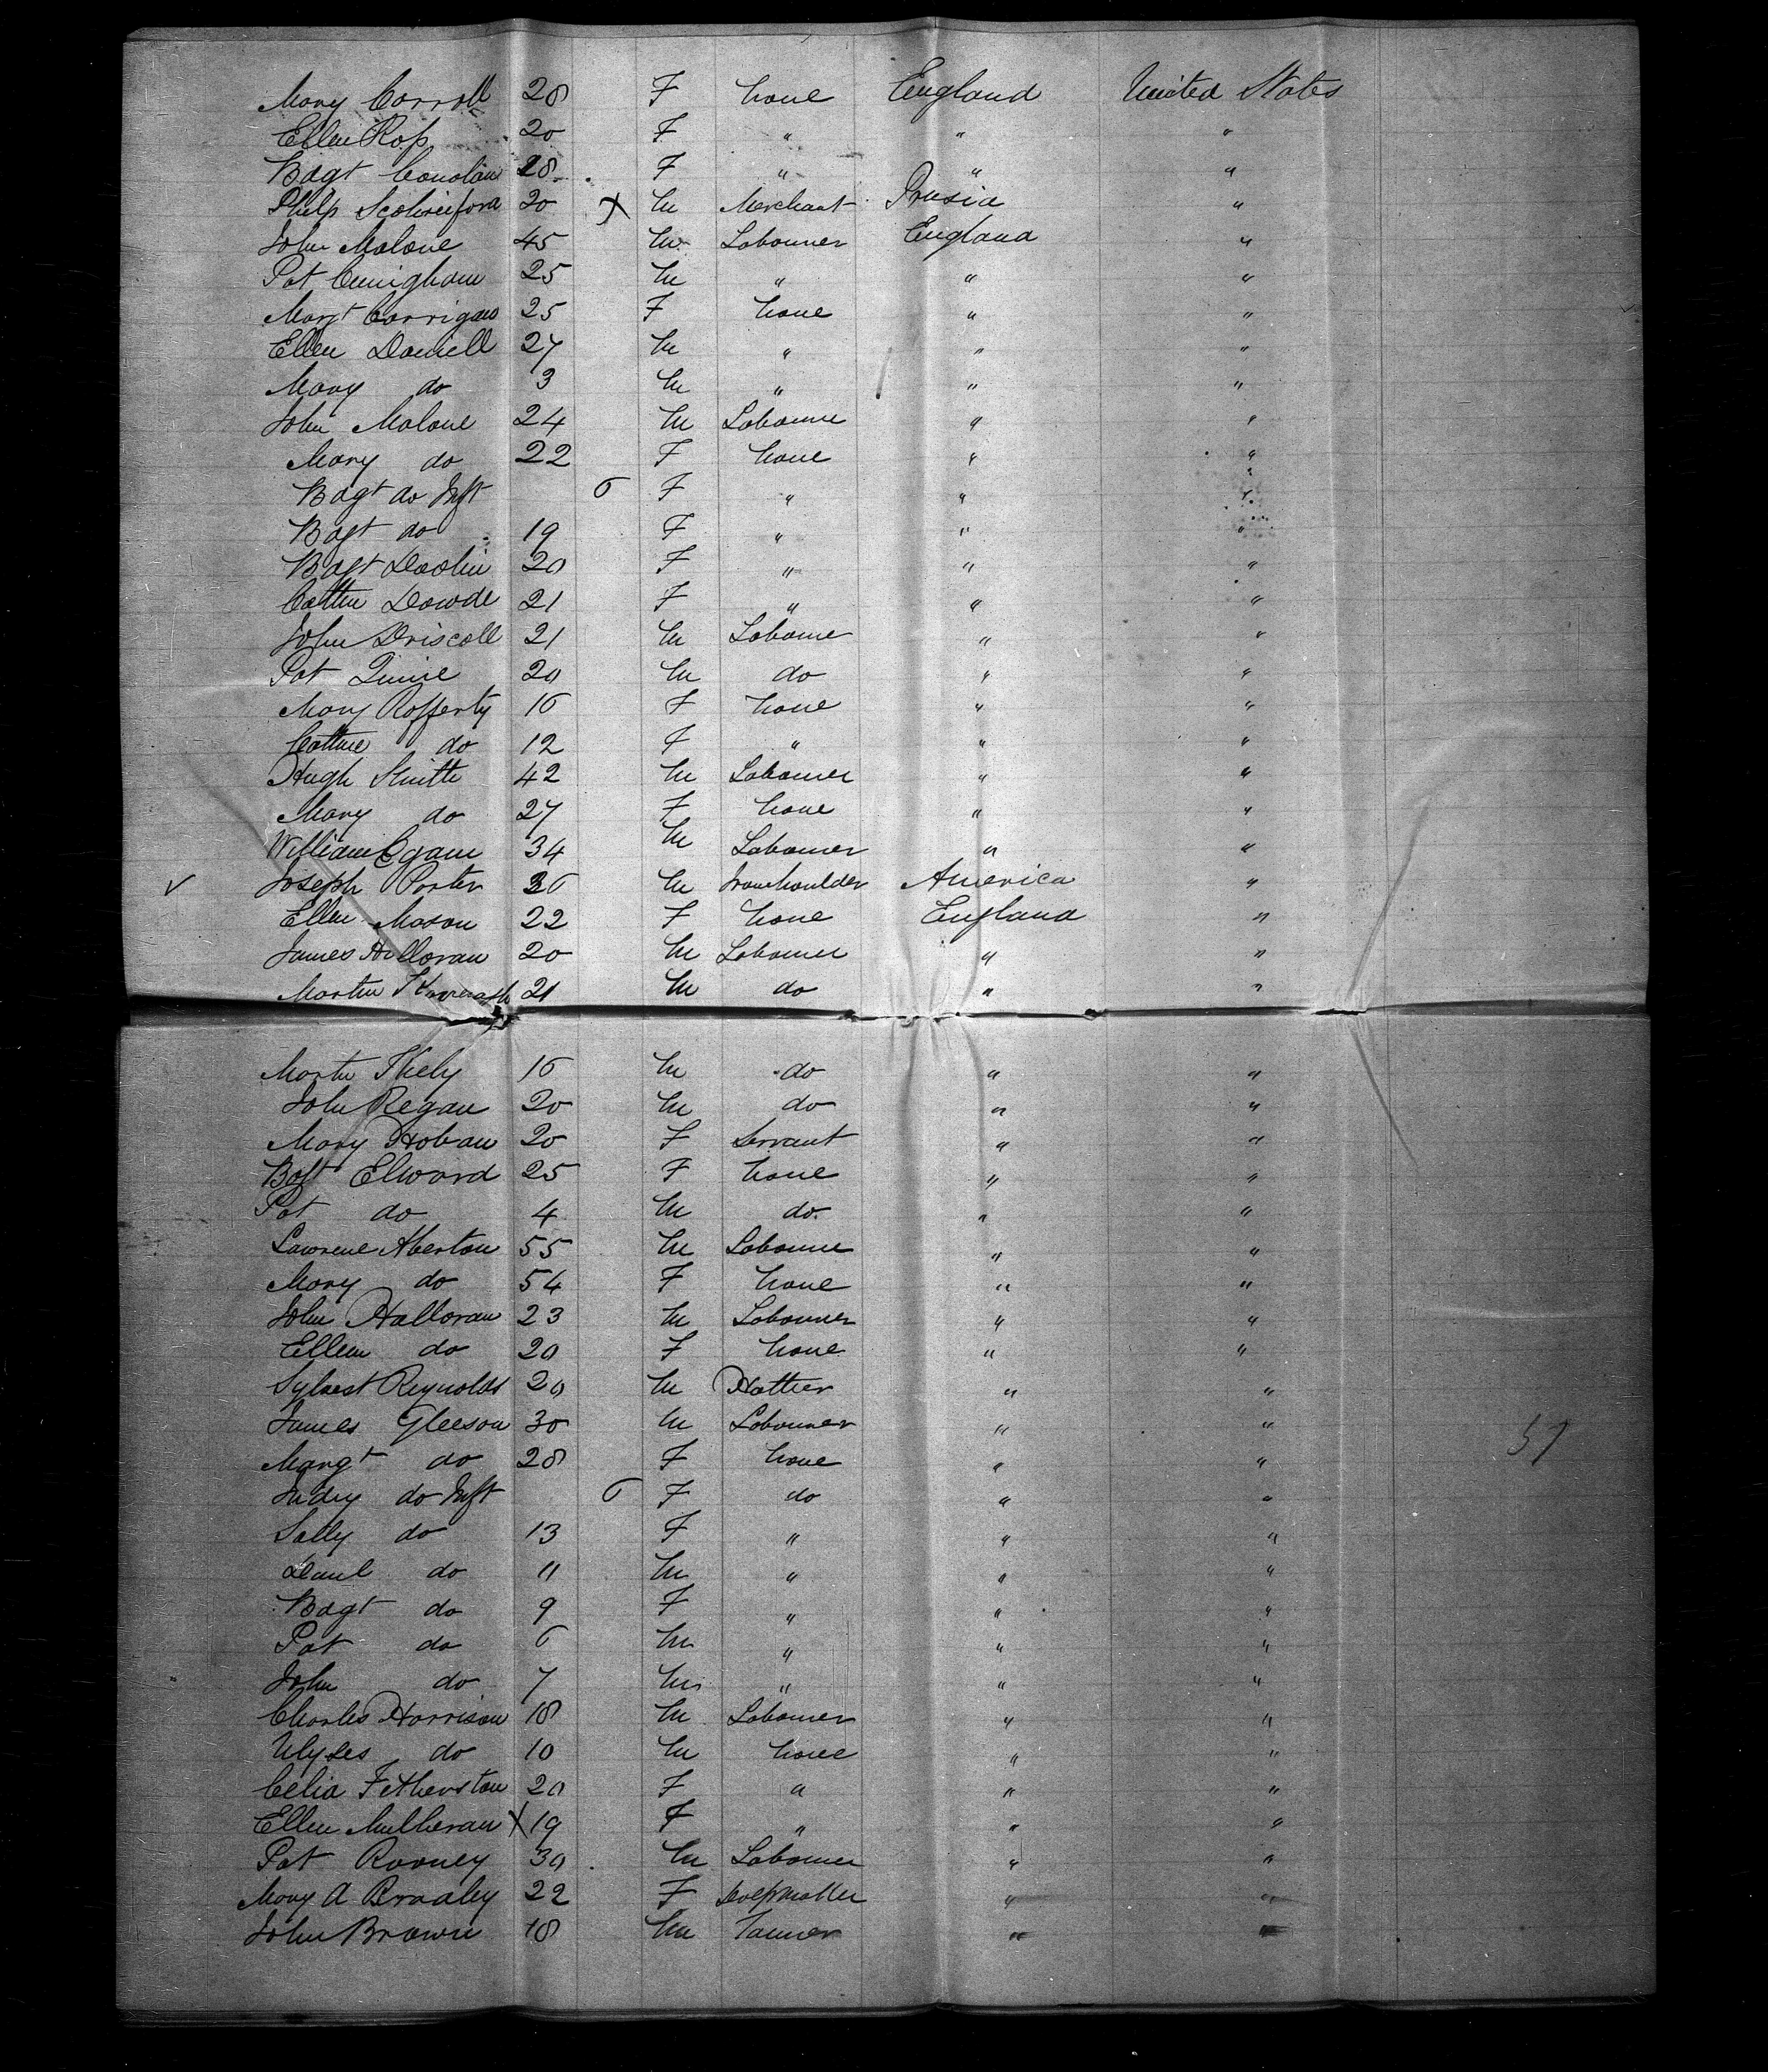 Mary Carroll 28 F None England United States
Ellen Ross 20 F " " "
Bdgt Conolan 28 F " " "
Philp 20 X M Merchant Prusia "
John Malone 45 M Labourer England "
Pat Cunigham 25 M " " "
Margt Carrigan 25 F None " "
Ellen Daniell 27 M " " "
Mary do 3 M " " "
John Malone 24 M Labourer " "
Mary do 22 F None " "
Bdgt do Inft 6 F " " "
Bdgt do 19 F " " "
Bdgt Doolin 20 F " " "
Cathe Dowde 21 F " " "
John Driscoll 21 M Labourer " "
Pat 20 M do " "
Mary Rafferty 16 F None " "
Cathne do 12 F " " "
Hugh Smith 42 M Labourer " "
Mary do 27 F None " "
William Egan 34 M Labourer " "
✓ Joseph Porter 36 M Ironmoulder America "
Ellen Mason 22 F None England "
James Halloran 20 M Labourer " "
Martin 21 M do " "
Martn 16 M do " "
John Regan 20 M do " "
Mary Hoban 20 F Servant " "
Bgt Elward 25 F None " "
Pat do 4 M do " "
Lawrence Aberton 55 M Labourer " "
Mary do 54 F None " "
John Halloran 23 M Labourer " "
Ellen do 20 F None " "
Sylvest Reynolds 20 M Hatter " "
James Gleeson 30 M Labourer " " 57
Margt do 28 F None " "
Judy do Inft 6 F do " "
Sally do 13 F " " "
Danl do 11 M " " "
Bdgt do 9 F " " "
Pat do 6 M " " "
John do 7 M " " "
Charles Harrison 18 M Labourer " "
Ulyses do 10 M None " "
Celia Fetherston 20 F " " "
Ellen Mulheran X 19 F " " "
Pat Rooney 30 M Labourer " "
Mary A Bradley 22 F " "
John Brown 18 M Tanner " "